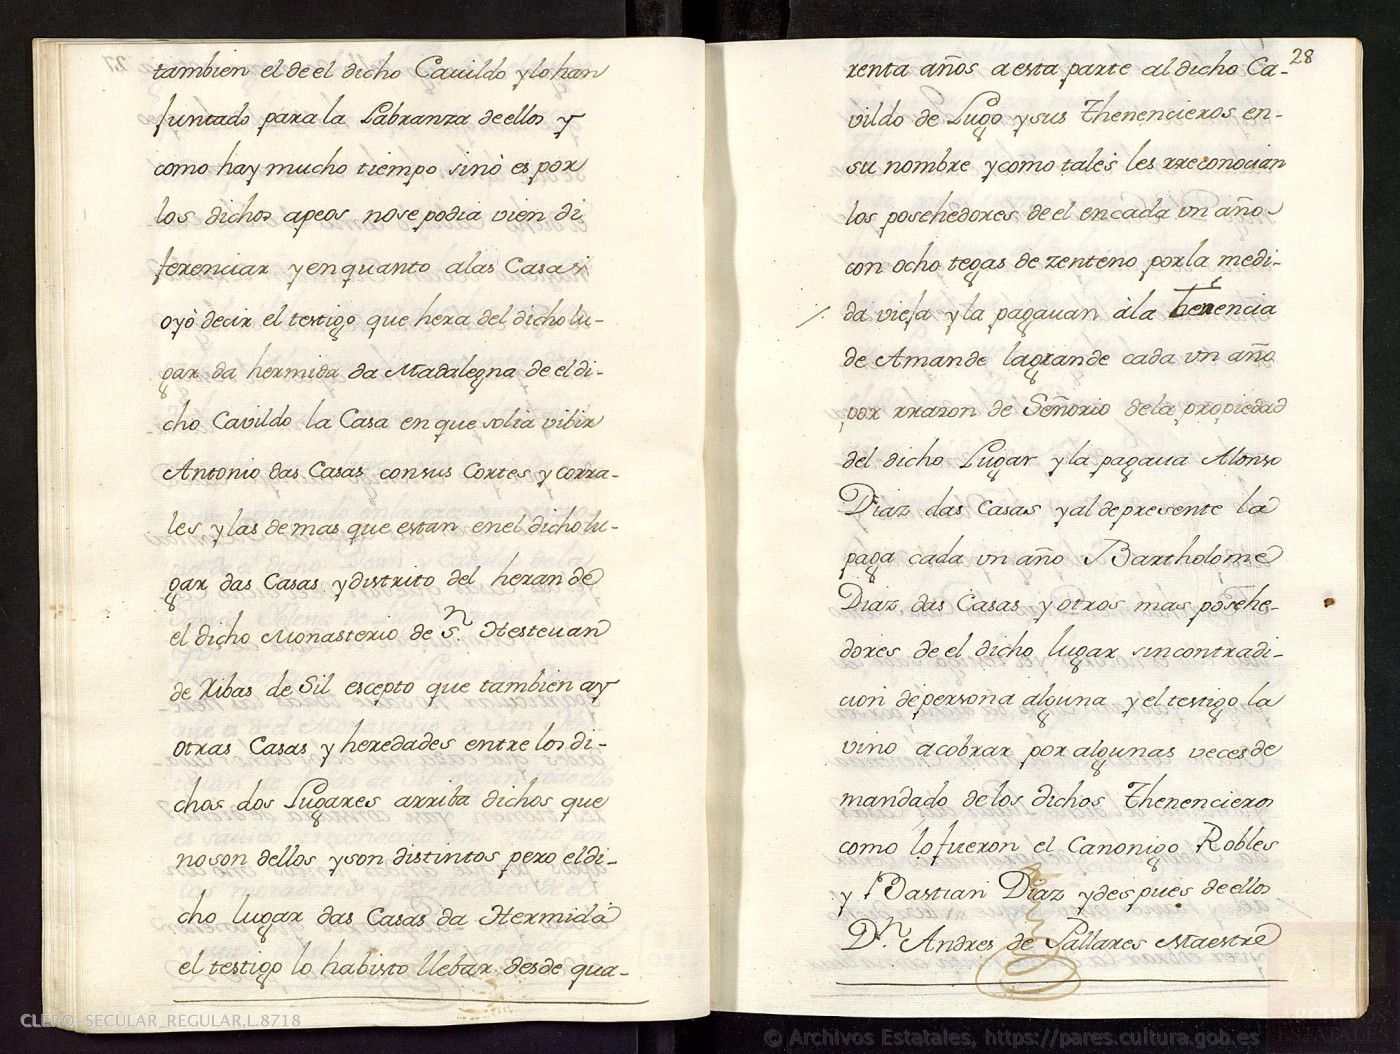 tambien el de el dicho Cavildo y lo han
juntado para la Labranza de ellos y
como hay mucho tiempo sinò es por
los dichos apeos nose podia vien di
ferenciar y en quanto a las Casas
oyò decir el testigo que hera del dicho lu-
gar da hermida da Madalegna de el di-
cho Cavildo la Casa en que solia vibir
Antonio das Casas con sus Cortes y corra-
les y las demas que estan en el dicho lu-
gar das Casas y distrito del heran de
el dicho Monasterio de S.n Hestevan
de Ribas de Sil escepto que tambien ay
otras Casas y heredades entre los di-
chos dos Lugares arriba dichos que
no son dellos y son distintos pero el di-
cho lugar das Casas da Hermida
el testigo lo ha bisto llebar desde qua-
28
renta años a esta parte al dicho Ca-
vildo de Lugo y sus Thenencieros en-
su nombre y como tales les rreconocian
los posehedores de el en cada un año
con ocho tegas de zenteno por la medi-
da vieja y la pagavan à la Thenencia
de Amande la grande cada un año
por rrazon de Señorio de la propiedad
del dicho Lugar y la pagaua Alonso
Diaz das Casas y al de presente la
paga cada un año Bartholome
Diaz das Casas y otros mas posehe-
dores de el dicho lugar sin contradi-
cion de persona alguna y el testigo la
vino a cobrar por algunas veces de
mandado de los dichos Thenencieros
como lo fueron el Canonigo Robles
y Bastian Diaz y despues de ellos
D.n Andres de Pallares Maestre
CLERO-SECULAR_REGULAR,L.8718
© Archivos Estatales, https://pares.cultura.gob.es